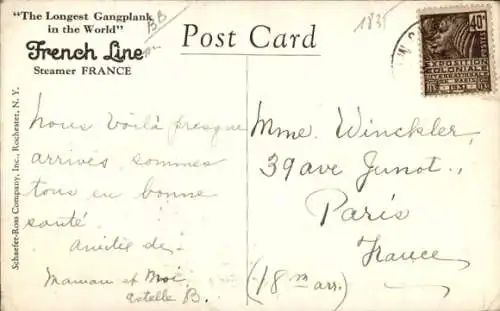 "The Longest Gangplank
in the World"
French Line
Steamer FRANCE
Post Card
1831
BB
40c
EXPOSITION
COLONIALE
INTERNATIONALE
DE PARIS
1931
Schaefer-Ross Company, Inc., Rochester, N. Y.
Nous voilà presque
arrivés, sommes
tous en bonne
santé.
Amitié de:
Maman et Moi
Estelle B.
Mme. Winckler,
39 ave Junot.,
Paris
France
(18m arr.)